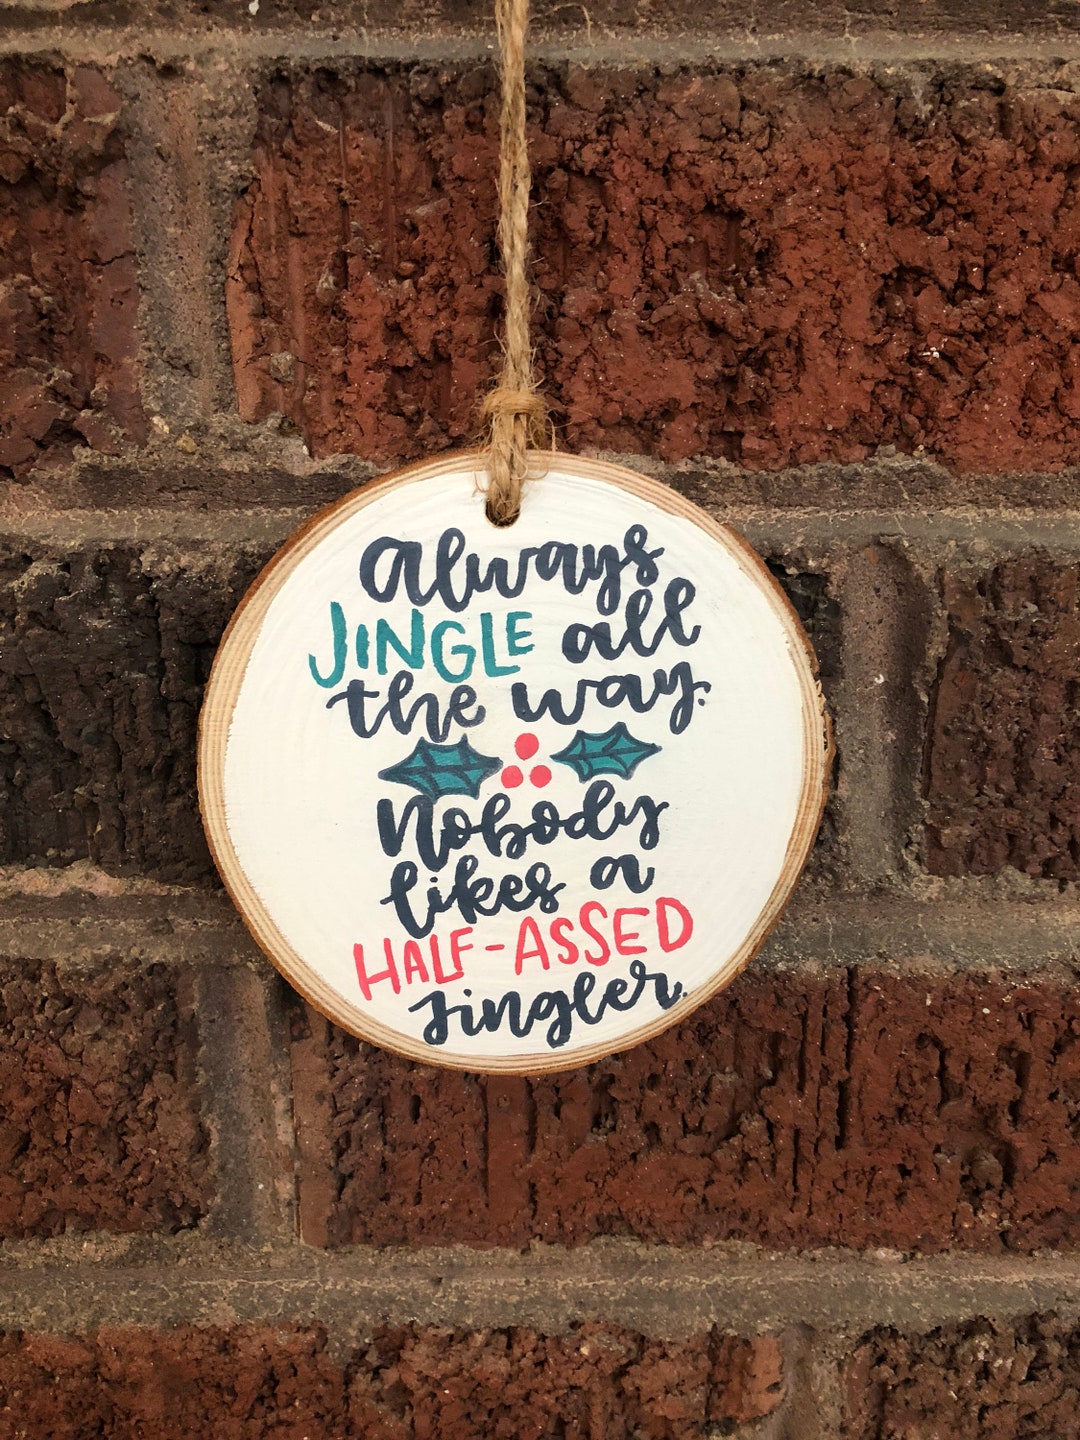 Always
JINGLE all
the way.
Nobody
likes a
HALF-ASSED
Jingler.